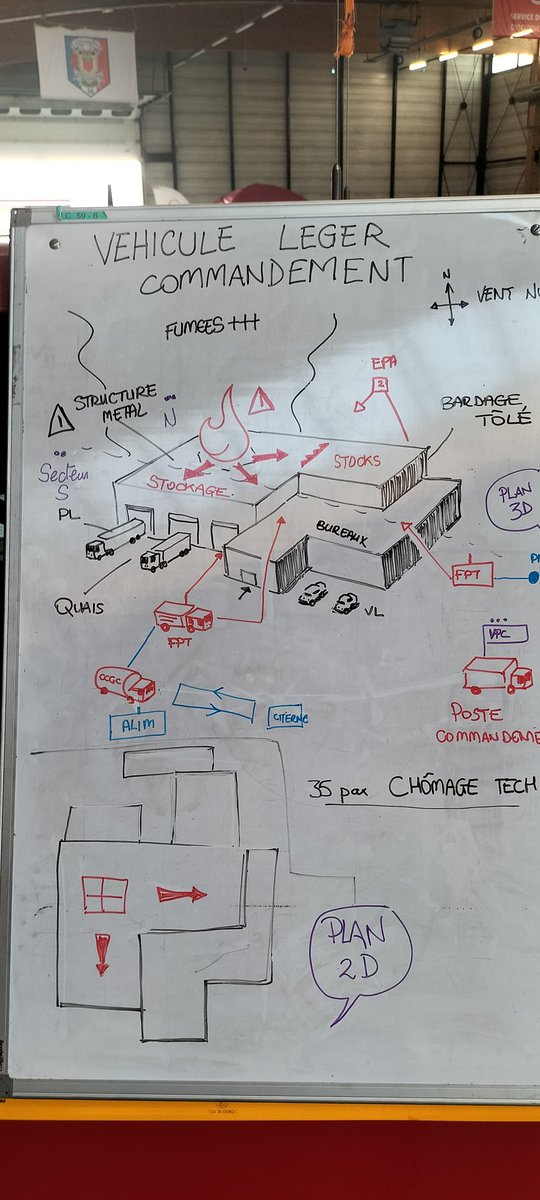 SERVICE DE
VEHICULE LEGER
COMMANDEMENT
N
VENT
FUMEES +++
EPA
2
STRUCTURE
METAL
!
N
!
BARDAGE
TÔLÉ
Secteur
S
STOCKAGE
STOCKS
PLAN
3D
PL
BUREAUX
FPT
QUAIS
VL
FPT
VPC
CCGC
ALIM
CITERNE
POSTE
COMMANDEME
35 par CHÔMAGE TECH
PLAN
2D